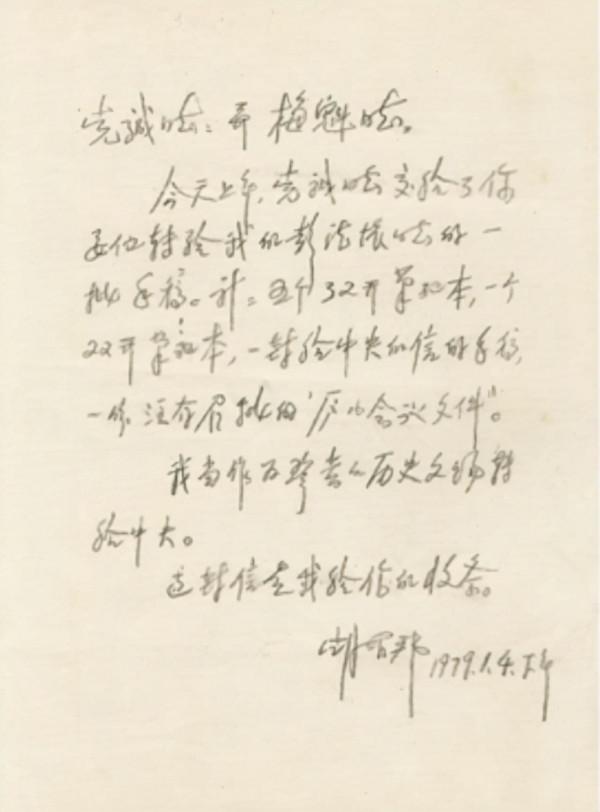 克诚同志：并梅魁同志。
今天上午，克诚同志交给了你
委他转给我的彭德怀同志的一
批手稿。计：五个32开笔记本，一个
22开笔记本，一封给中央的信的手稿，
一份注有眉批的“庐山会议文件”。
我当作为珍贵的历史文物转
给中央。
这封信是我给你的收条。
胡耀邦 1979.1.4.下午